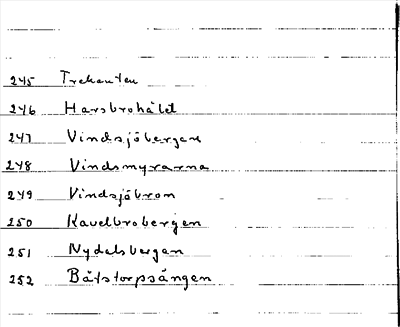 245 Trekanten
246 Harsbrohåld
247 Vindsjöbergen
248 Vindsmyrarna
249 Vindsjöbron
250 Kavelbrobergen
251 Nydalsbergen
252 Båtstorpsängen